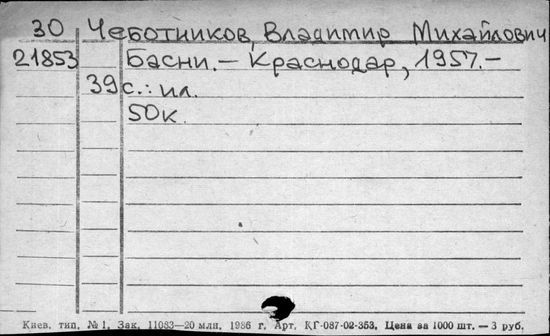 30 Чеботников, Владимир Михайлович
21853 Басни. – Краснодар, 1957. –
39 с.: ил.
50к.
Киев. тип. № 1. Зак. 11083—20 млн. 1986 г. Арт. КГ-087-02-353. Цена за 1000 шт. — 3 руб.